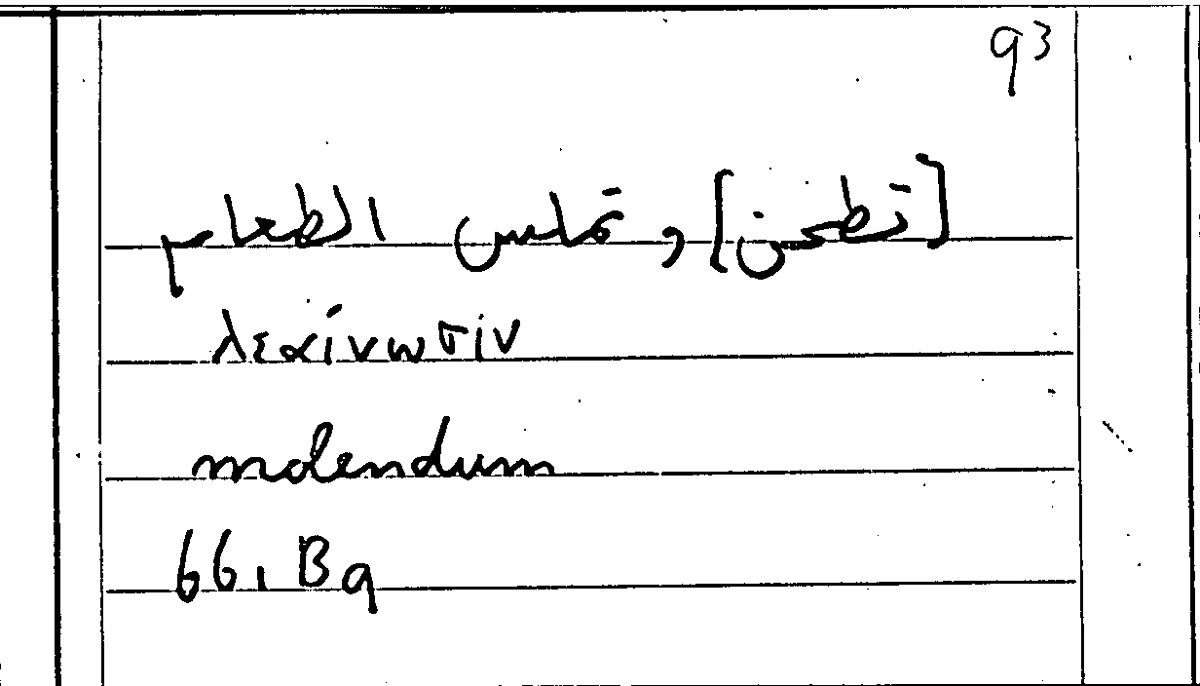 93
[تطحن] و تملس الطعام
λεαίνωσιν
molendum
66, B9